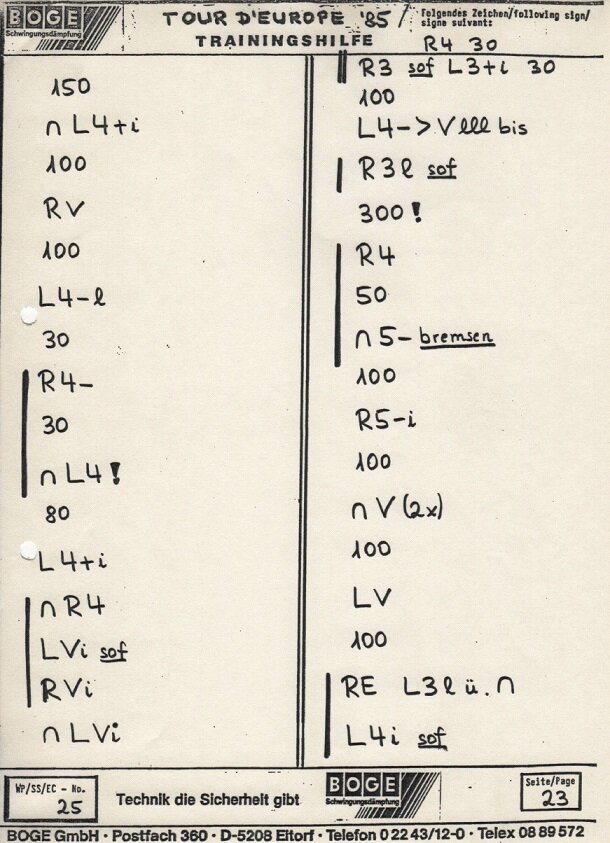 BOGE
Schwingungsdämpfung
TOUR D'EUROPE '85
TRAININGSHILFE
Folgendes Zeichen/following sign/
signe suivant:
R4 30
150
∩ L4+i
100
RV
100
L4-l
30
R4-
30
∩ L4!
80
L4+i
∩ R4
LVi sof
RVi
∩ LVi
R3 sof L3+i 30
100
L4-> Vlll bis
R3l sof
300!
R4
50
∩ 5- bremsen
100
R5-i
100
∩ V (2x)
100
LV
100
RE L3l ü. ∩
L4i sof
WP/SS/EC - No.
25
Technik die Sicherheit gibt
BOGE
Schwingungsdämpfung
Seite/Page
23
BOGE GmbH · Postfach 360 · D-5208 Eitorf · Telefon 0 22 43/12-0 · Telex 08 89 572